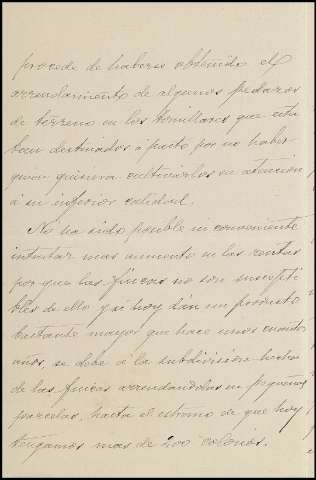 procede de haberse obtenido el
arrendamiento de algunos pedazos
de terreno en los tomillares que esta
ban destinados a pasto por no haber
quien quisiera cultivarlos en atencion
á su inferior calidad.
No ha sido posible ni conveniente
intentar mas aumento en las rentas
porque las fincas no son suscepti
bles de ello y si hoy dan un producto
bastante mayor que hace unos cuantos
años, se debe á la subdivisión hecha
de las fincas arrendandolas en pequeñas
parcelas, hasta el estremo de que hoy
tengamos mas de 200 colonos.